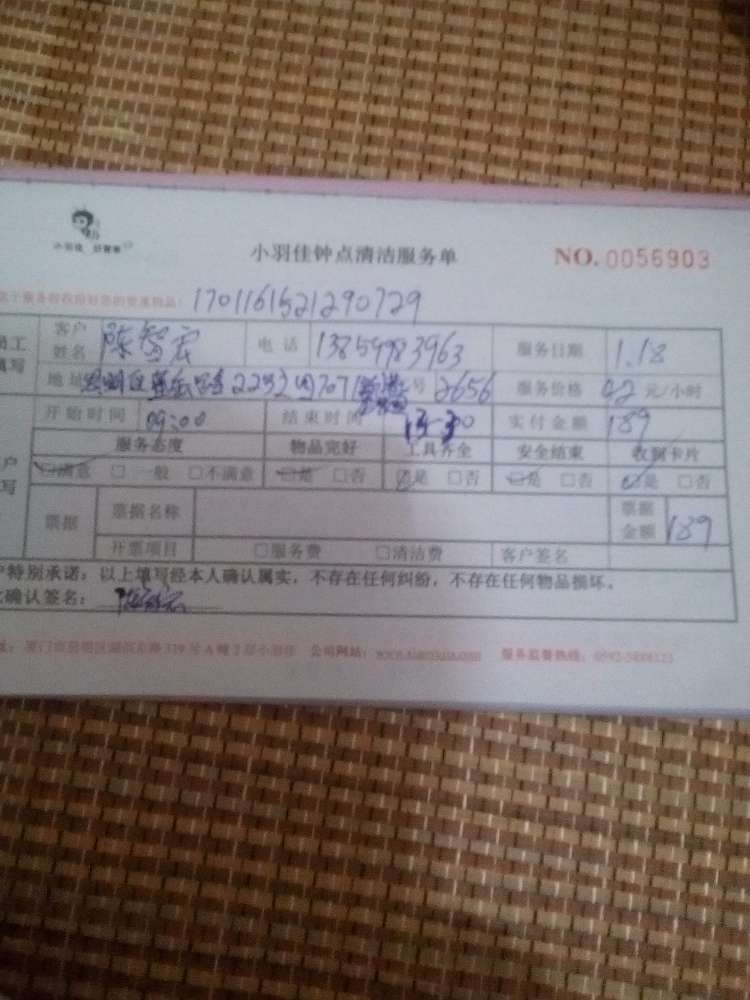 小羽佳钟点清洁服务单 NO. 0056903
1701161521290729
员工填写 客户姓名 陈智宏 电话 13859983963 服务日期 1.18
地址 2232 707 号 2656 服务价格 42 元/小时
开始时间 09:00 结束时间 13:30 实付金额 189
服务态度 物品完好 工具齐全 安全结束 收到卡片
☑满意 □一般 □不满意 ☑是 □否 ☑是 □否 ☑是 □否 ☑是 □否
票据 票据名称 票据金额 189
开票项目 □服务费 □清洁费 客户签名
户特别承诺：以上填写经本人确认属实，不存在任何纠纷，不存在任何物品损坏。
确认签名：陈智宏
厦门市思明区湖滨东路319号A幢2层小羽佳 公司网站： 服务监督热线：